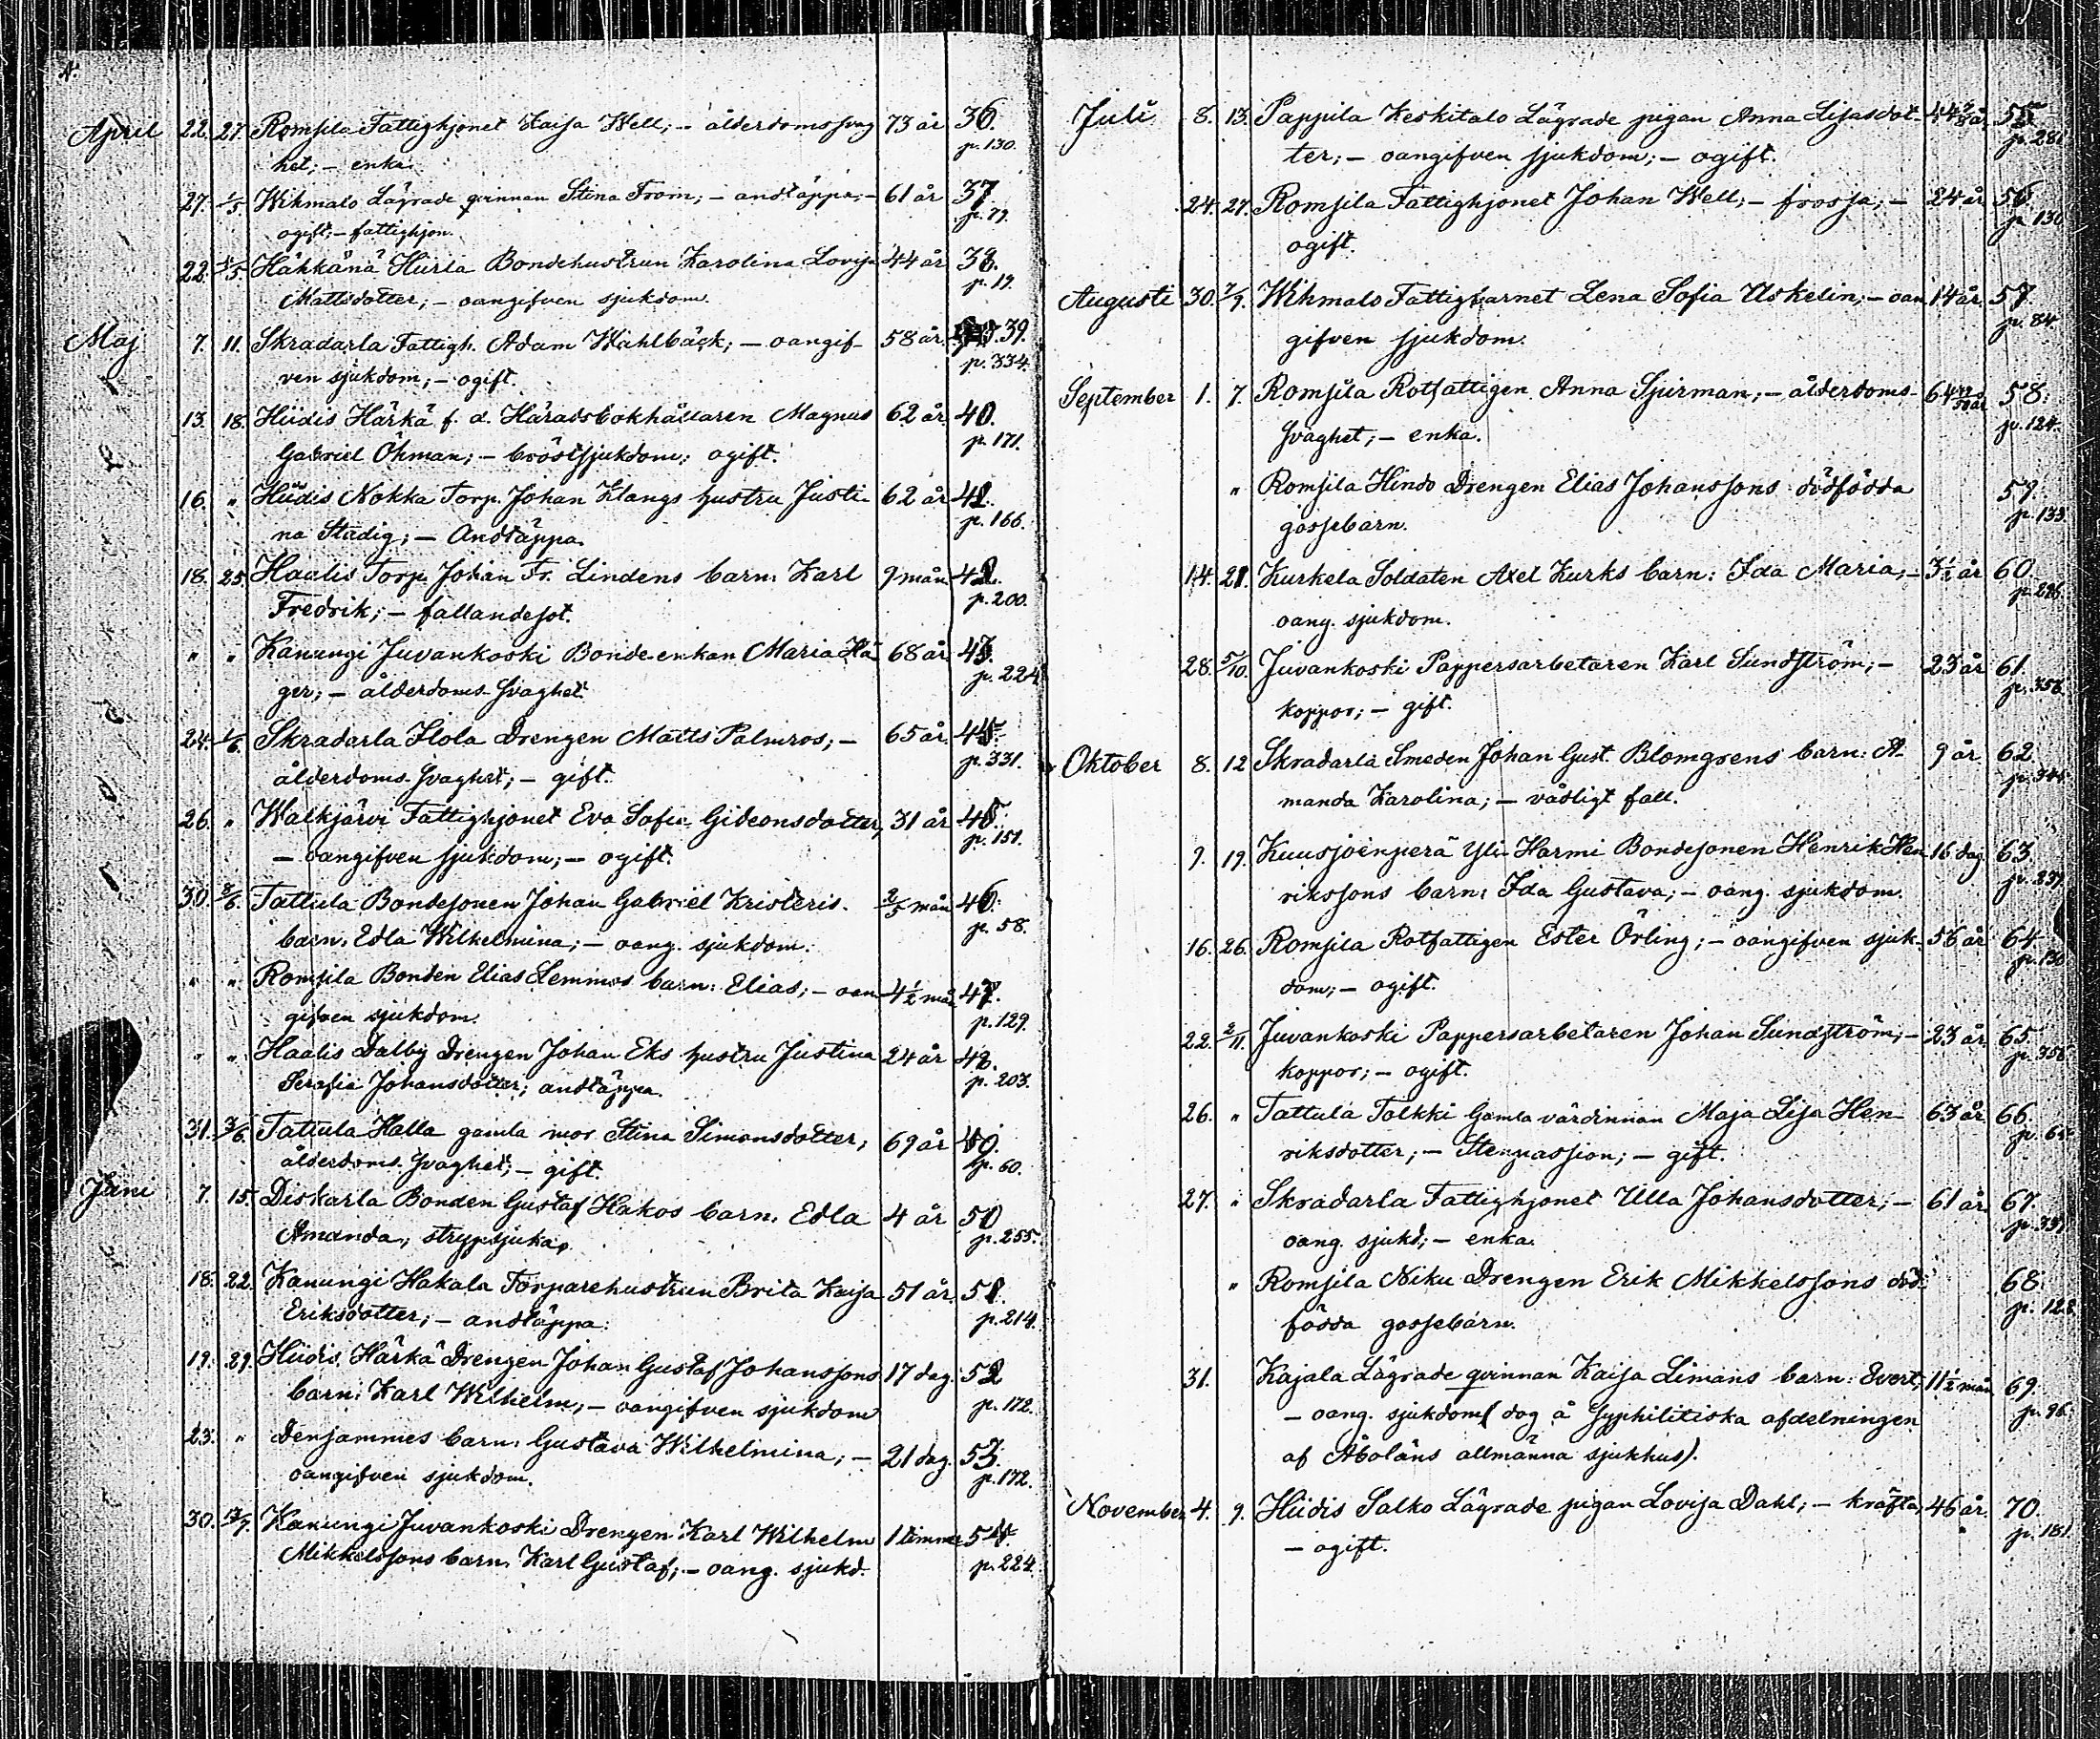 4.
April 22. 27. Romsila Fattighjonet Kaisa Well; - ålderdomssvag 73 år 36.
het; - enka. p. 130.
27. 1/5. Wihmalo Lägrade qvinnan Stina From; - andtäppa; - 61 år 37.
ogift; - fattighjon. p. 79.
22. /5. Hähkänä Hürla Bondehustrun Karolina Lovisa 44 år 38.
Mattsdotter; - oangifven sjukdom. p. 19.
Maj 7. 11. Skradarla Fattigh. Adam Wahlbäck; - oangif- 58 år. 39.
ven sjukdom; - ogift. p. 334.
13. 18. Hiidis Härkä f. d. Häradsbokhållaren Magnus 62 år 40.
Gabriel Öhman; - bröstsjukdom; ogift. p. 171.
16. " Hiidis Nokka Torp. Johan Klangs hustru Justi- 62 år 41.
na Stadig; - Andtäppa. p. 166.
18. 25. Haalis Torp. Johan Fr. Lindens barn: Karl 9 mån. 42.
Fredrik; - fallandesot. p. 200.
" " Kanungi Juvankoski Bonde-enkan Maria Hä- 68 år 43.
ger; - ålderdoms-svaghet. p. 224.
24. 1/6. Skradarla Ilola Drengen Matts Palmros; - 65 år. 44.
ålderdoms-svaghet; - gift. p. 331.
26. " Walkjärvi Fattighjonet Eva Sofia Gideonsdotter, 31 år 45.
- oangifven sjukdom; - ogift. p. 151.
30. /6. Tattula Bondesonen Johan Gabriel Kristeris. 2/5 mån 46.
barn: Edla Wilhelmina; - oang. sjukdom. p. 58.
" " Romsila Bonden Elias Lemmos barn: Elias; - oan- 4 1/2 mån 47.
gifven sjukdom. p. 129.
" " Haalis Dalby Drengen Johan Eks hustru Justina 24 år 48.
Serafia Johansdotter; andtäppa. p. 203.
31. 3/6. Tattula Halla gamla mor Stina Simonsdotter; 69 år 49.
ålderdoms-svaghet; - gift. p. 60.
Juni 7. 15. Diskarla Bonden Gustaf Hakos barn: Edla 4 år 50
Amanda; strypsjuka. p. 255.
18. 22. Kanungi Hakala Torparehustrun Brita Kaisa 51 år. 51.
Eriksdotter; - andtäppa. p. 214.
19. 29. Hiidis Härkä Drengen Johan Gustaf Johanssons 17 dag. 52
barn: Karl Wilhelm; - oangifven sjukdom p. 172.
23. " Densammes barn: Gustava Wilhelmina; - 21 dag. 53.
oangifven sjukdom. p. 172.
30. /7. Kanungi Juvankoski Drengen Karl Wilhelm 1 timme 54.
Mikkelssons barn: Karl Gustaf; - oang. sjukd. p. 224.
Juli 8. 13. Pappila Keskitalo Lägrade pigan Anna Lisasdot- 55
ter; - oangifven sjukdom; - ogift. p. 281
24. 27. Romsila Fattighjonet Johan Well; - frossa; - 24 år 56.
ogift. p. 130
Augusti 30. 7/9. Wihmalo Fattigbarnet Lena Sofia Uskelin; - oan- 14 år. 57.
gifven sjukdom. p. 84.
September 1. 7. Romsila Rotfattigen Anna Sjurman; - ålderdoms- 64 58.
svaghet; - enka. p. 124.
" Romsila Hindo Drengen Elias Johanssons dödfödda 59.
gossebarn. p. 133.
14. 21. Kurkela Soldaten Axel Kurks barn: Ida Maria; - 3 1/2 år 60.
oang. sjukdom. p. 286.
28. 5/10. Juvankoski Pappersarbetaren Karl Sundström; - 23 år 61.
koppor; - gift. p. 358.
Oktober 8. 12 Skradarla Smeden Johan Gust. Blomgrens barn: A- 9 år 62.
manda Karolina; - vådligt fall. p. 344.
9. 19. Kuusjoenperä Yli-Harmi Bondesonen Henrik Hen- 16 dag. 63.
rikssons barn: Ida Gustava; - oang. sjukdom. p. 237.
16. 26. Romsila Rotfattigen Ester Örling; - oangifven sjuk- 56 år 64
dom; - ogift. p. 130
22. 2/11. Juvankoski Pappersarbetaren Johan Sundström; - 23 år 65.
koppor; - ogift. p. 358.
26. " Tattula Tolkki Gamla värdinnan Maja Lisa Hen- 63 år 66.
riksdotter; - Stenpassion; - gift. p. 65.
27. " Skradarla Fattighjonet Ulla Johansdotter; - 61 år 67.
oang. sjukd; - enka. p. 331
" Romsila Niku Drengen Erik Mikkelssons död- 68.
födda gossebarn. p. 128.
31. Kajala Lägrade qvinnan Kaisa Limans barn: Evert; 11 1/2 mån 69.
- oang. sjukdom (dog å syphilitiska afdelningen p. 96.
af Åbo läns allmänna sjukhus).
November 4. 9. Hiidis Salko Lägrade pigan Lovisa Dahl; - kräfta; 46 år. 70.
- ogift. p. 181.